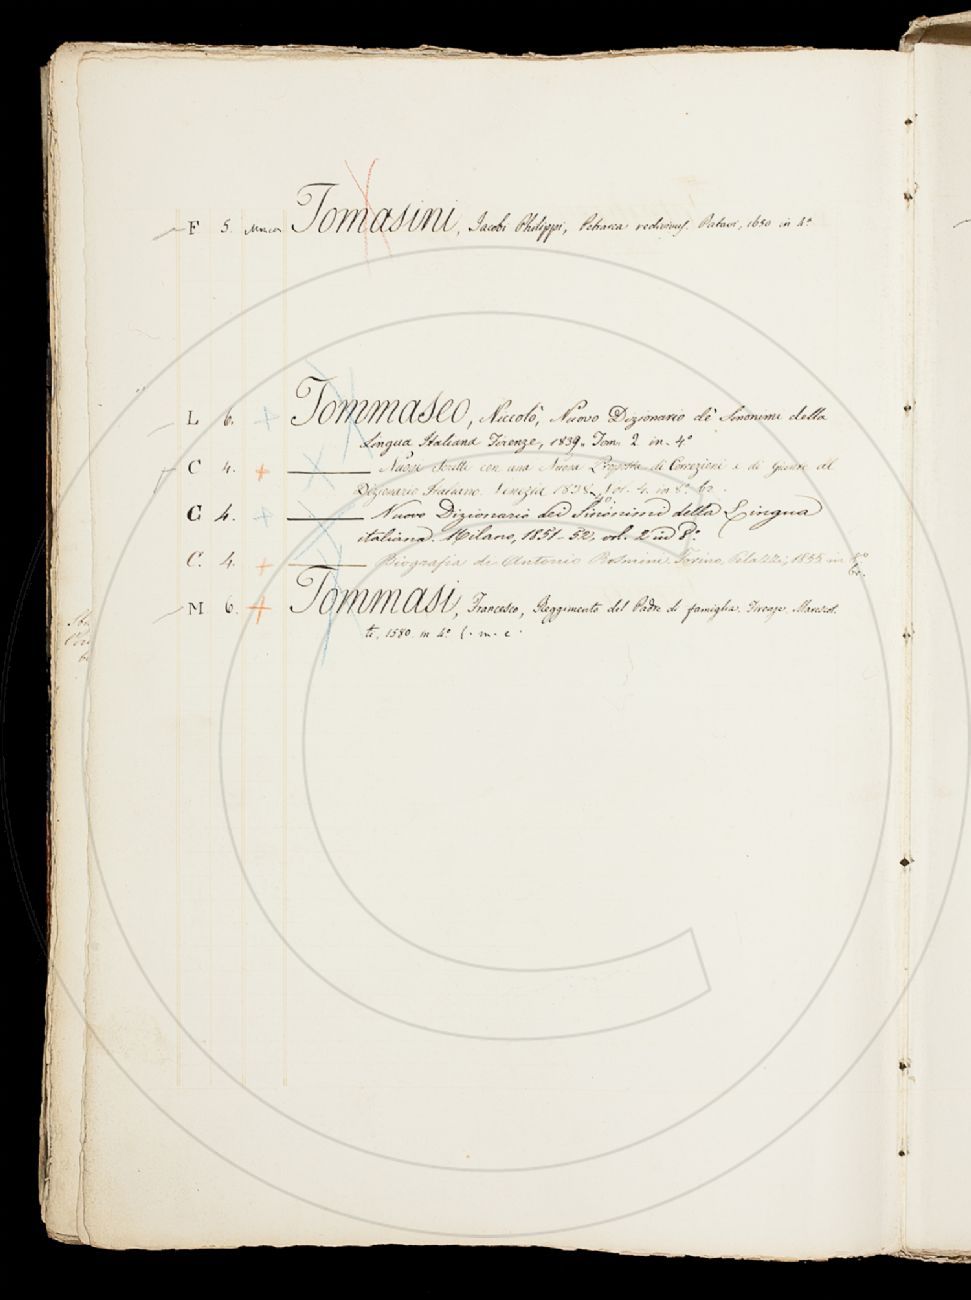 F 5. Tomasini, Jacobi Philippi, Petrarca redivivus. Patavi, 1650 in 4º
L 6. Tommaseo, Niccolò, Nuovo Dizionario de' Sinonimi della
Lingua Italiana Firenze, 1839. Tom. 2 in 4º
C 4. Nuovi Scritti con una Nuova Proposta di Correzioni e di Giunte al
Dizionario Italiano. Venezia 1838. Vol. 4. in 8º br.
C 4. Nuovo Dizionario dei Sinonimi della Lingua
italiana. Milano, 1851-52, vol. 2 in 8º
C. 4. Biografia di Antonio Rosmini. Torino, 1855 in
br.
M 6. Tommasi, Francesco, Reggimento del Padre di famiglia. Firenze. Marescot-
ti, 1580. in 4º l. m. c.